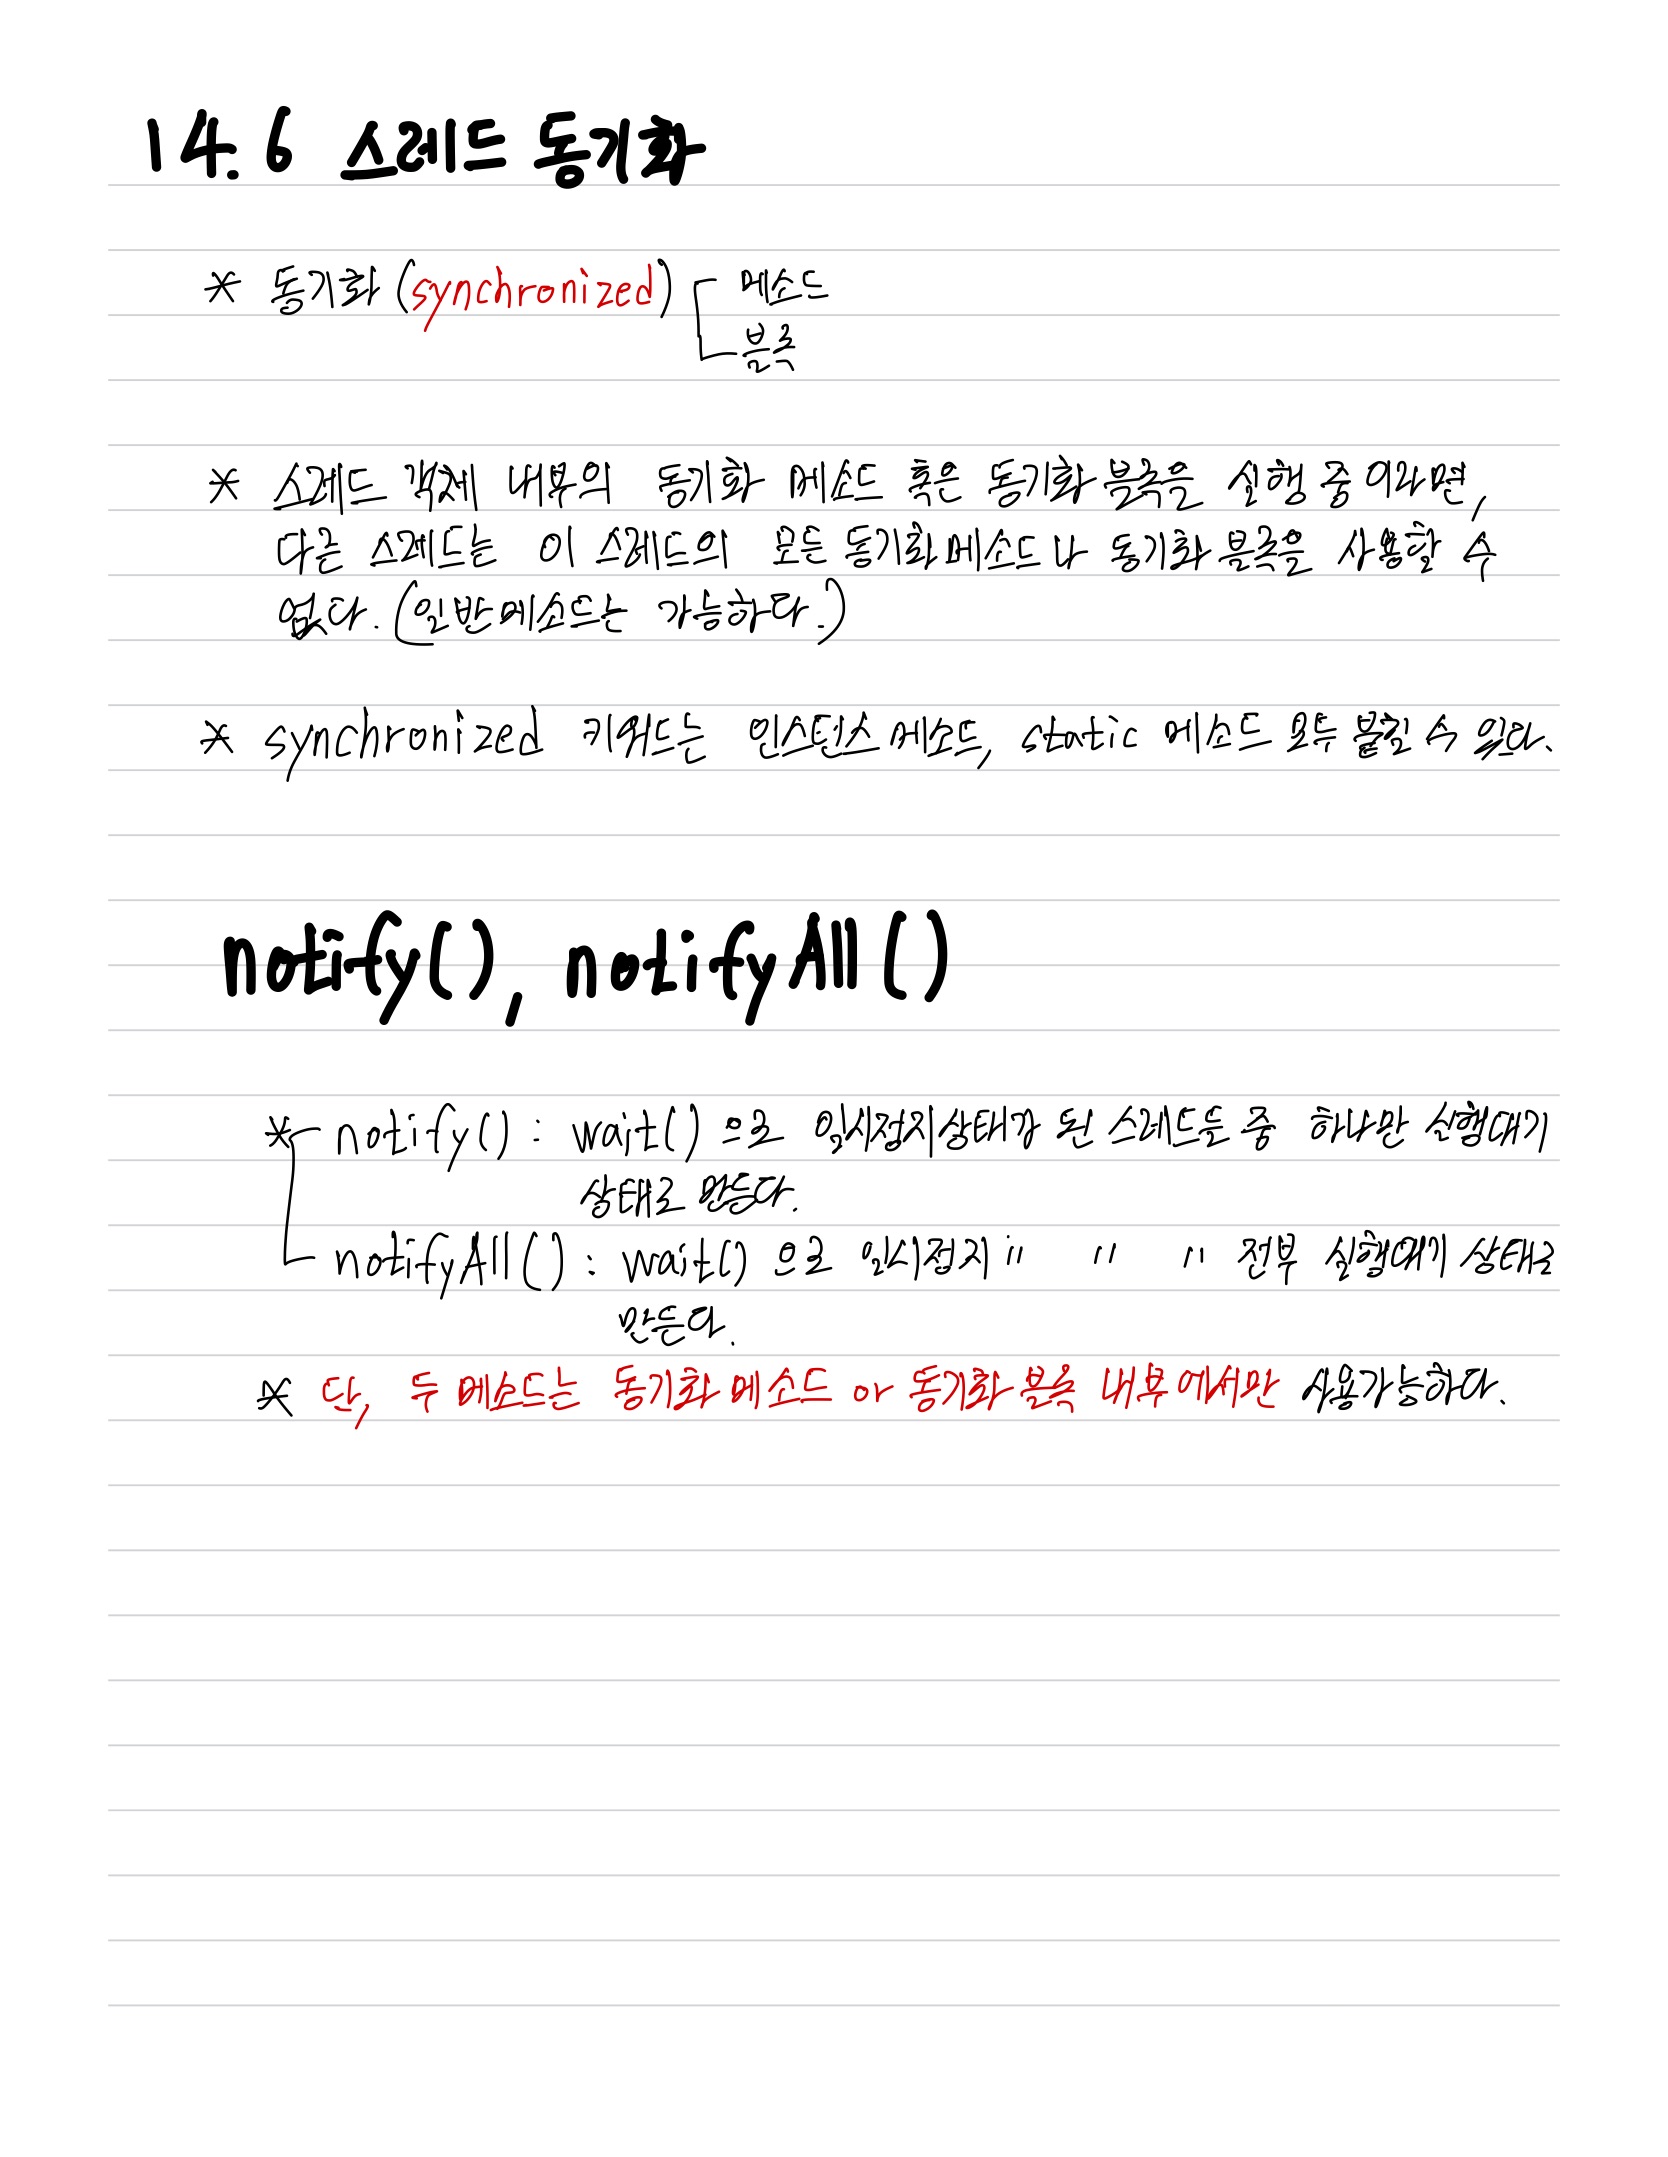 14.6 스레드 동기화
* 동기화(synchronized) 메소드
블록
* 스레드 객체 내부의 동기화 메소드 혹은 동기화 블록을 실행 중 이라면,
다른 스레드는 이 스레드의 모든 동기화 메소드나 동기화 블록을 사용할 수
없다. (일반메소드는 가능하다.)
* synchronized 키워드는 인스턴스 메소드, static 메소드 모두 붙일 수 있다.
notify(), notifyAll()
* notify() : wait() 으로 일시정지상태가 된 스레드들 중 하나만 실행대기
상태로 만든다.
notifyAll() : wait() 으로 일시정지 " " " 전부 실행대기 상태로
만든다.
* 단, 두 메소드는 동기화 메소드 or 동기화 블록 내부에서만 사용가능하다.